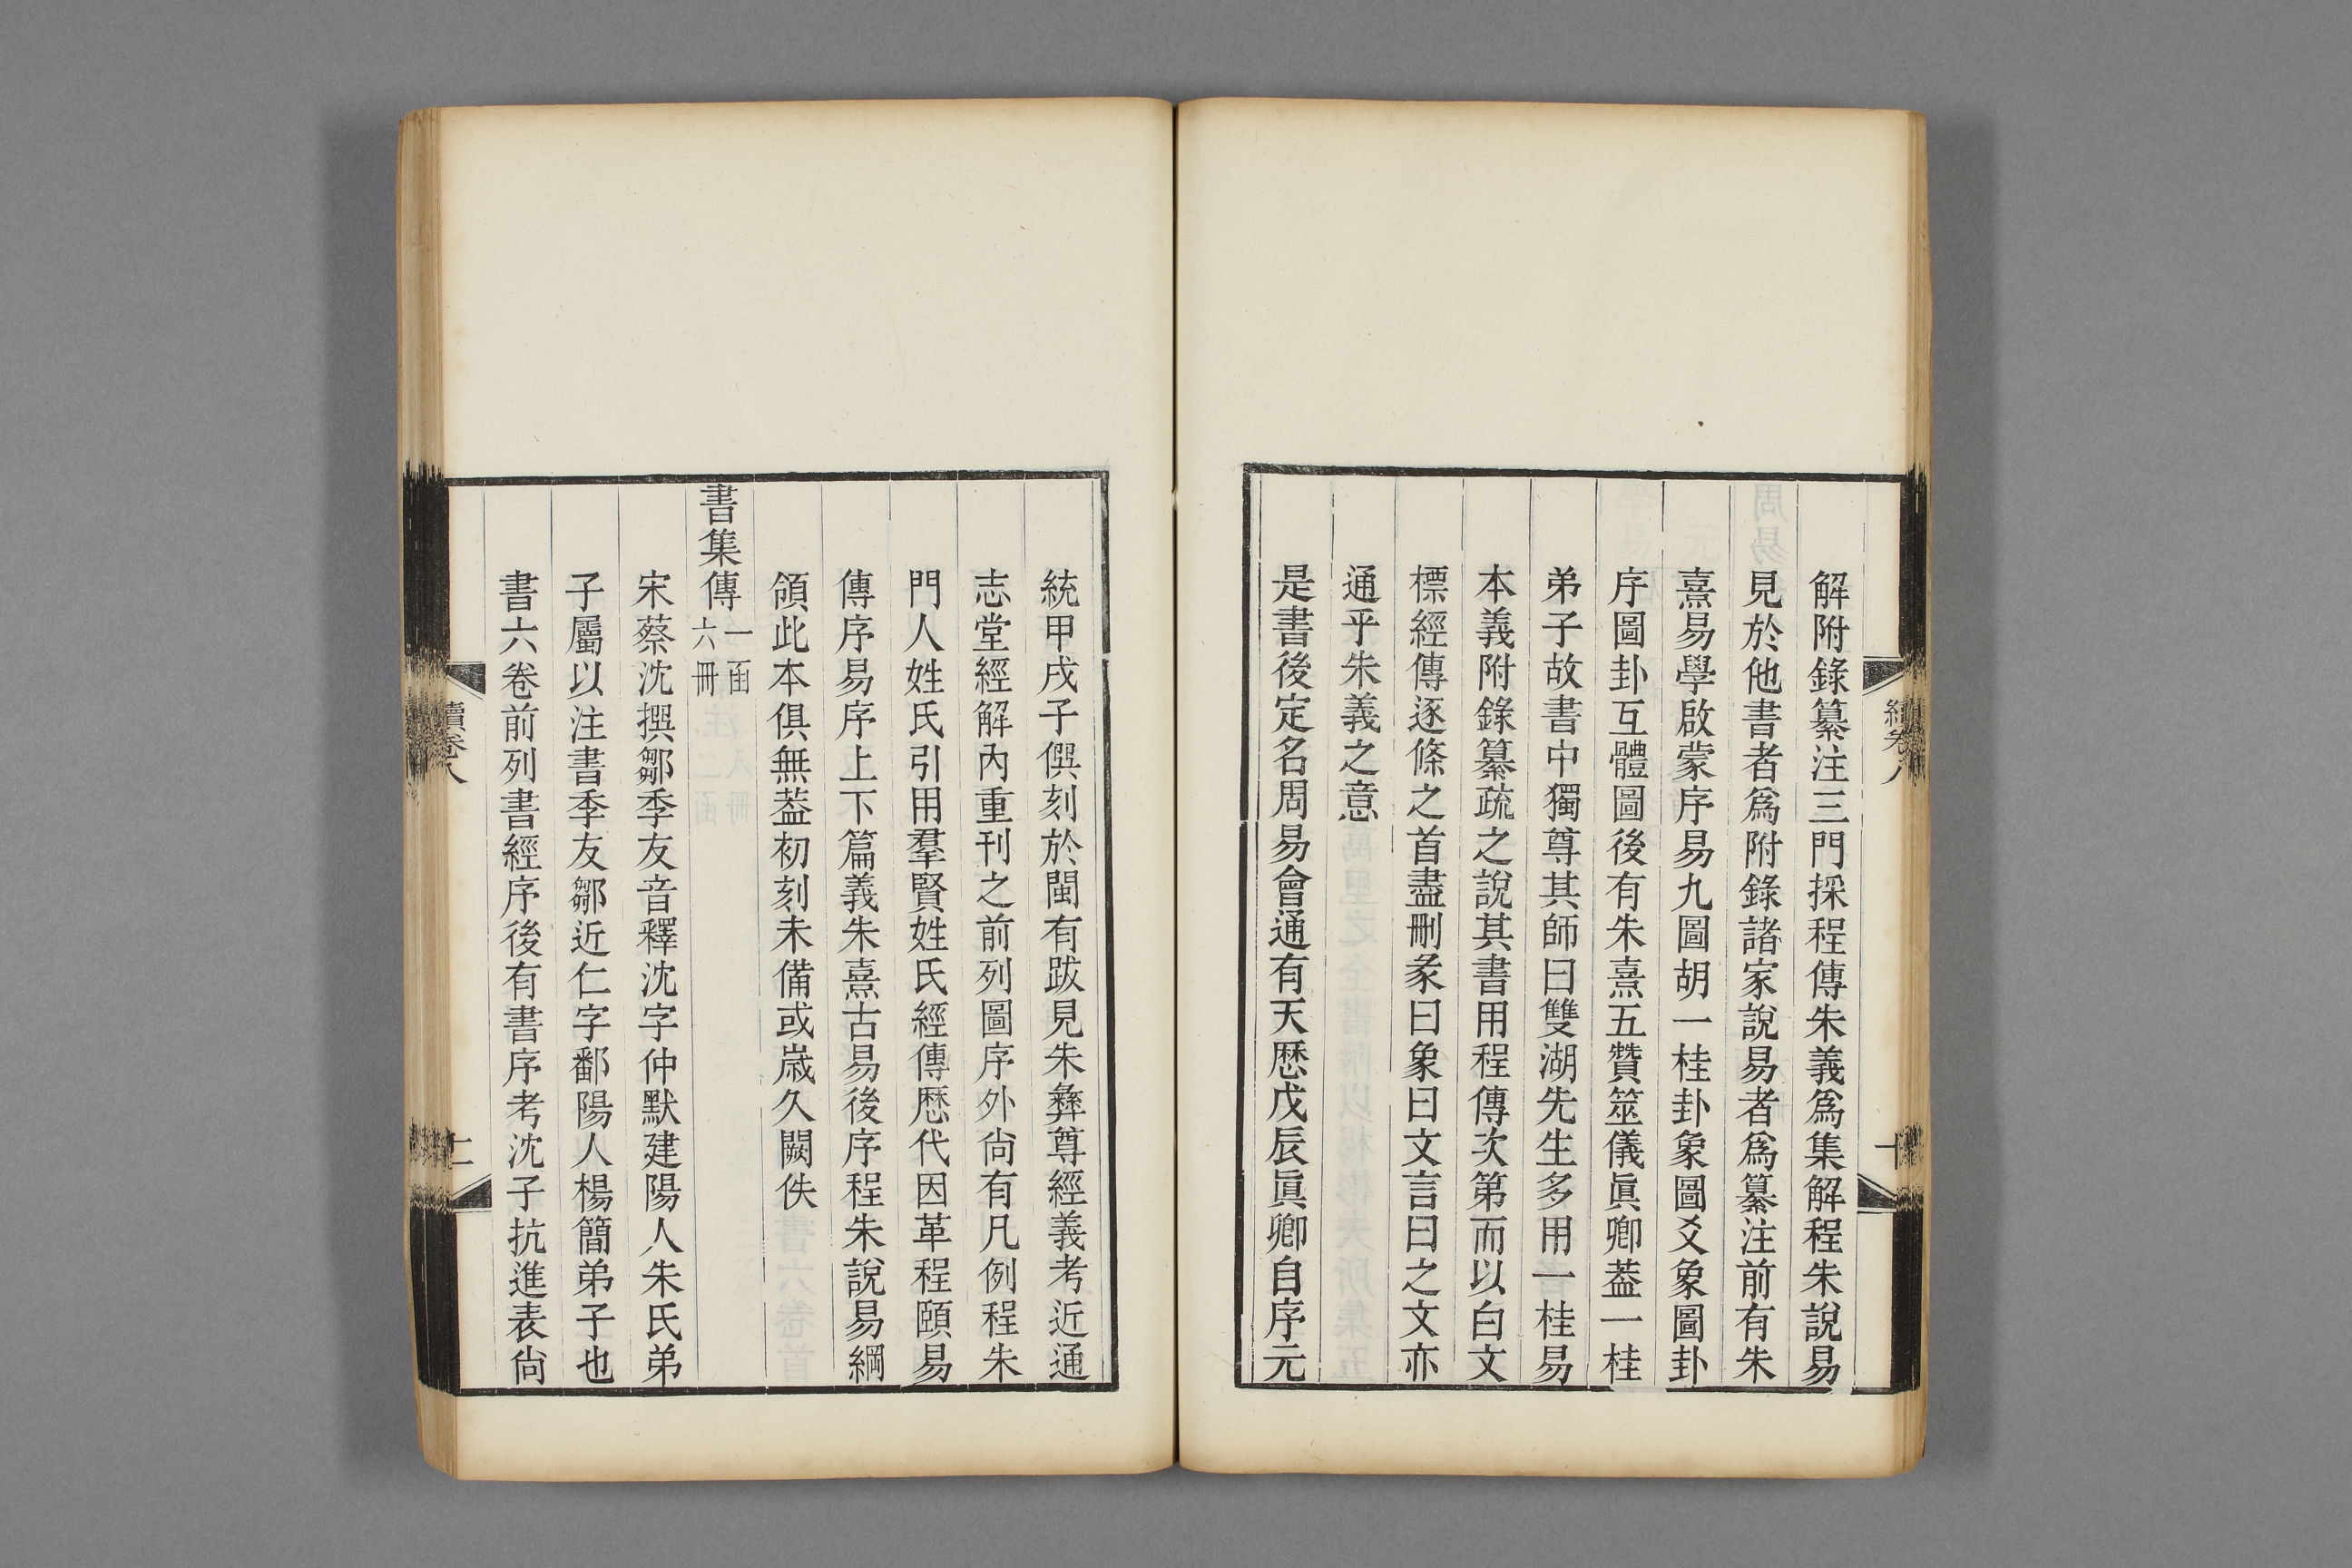 解附錄纂注三門採程傳朱義爲集解程朱說易
見於他書者爲附錄諸家說易者爲纂注前有朱
熹易學啟蒙序易九圖胡一桂卦象圖爻象圖卦
序圖卦互體圖後有朱熹五贊筮儀眞卿葢一桂
弟子故書中獨尊其師曰雙湖先生多用一桂易
本義附錄纂疏之說其書用程傳次第而以白文
標經傳逐條之首盡刪彖曰象曰文言曰之文亦
通乎朱義之意
是書後定名周易會通有天歷戊辰眞卿自序元
統甲戌子僎刻於閩有跋見朱彝尊經義考近通
志堂經解內重刊之前列圖序外尙有凡例程朱
門人姓氏引用羣賢姓氏經傳歷代因革程頤易
傳序易序上下篇義朱熹古易後序程朱說易綱
領此本俱無葢初刻未備或歲久闕佚
書集傳一函六冊
宋蔡沈撰鄒季友音釋沈字仲默建陽人朱氏弟
子屬以注書季友鄒近仁字鄱陽人楊簡弟子也
書六卷前列書經序後有書序考沈子抗進表尙
續卷八